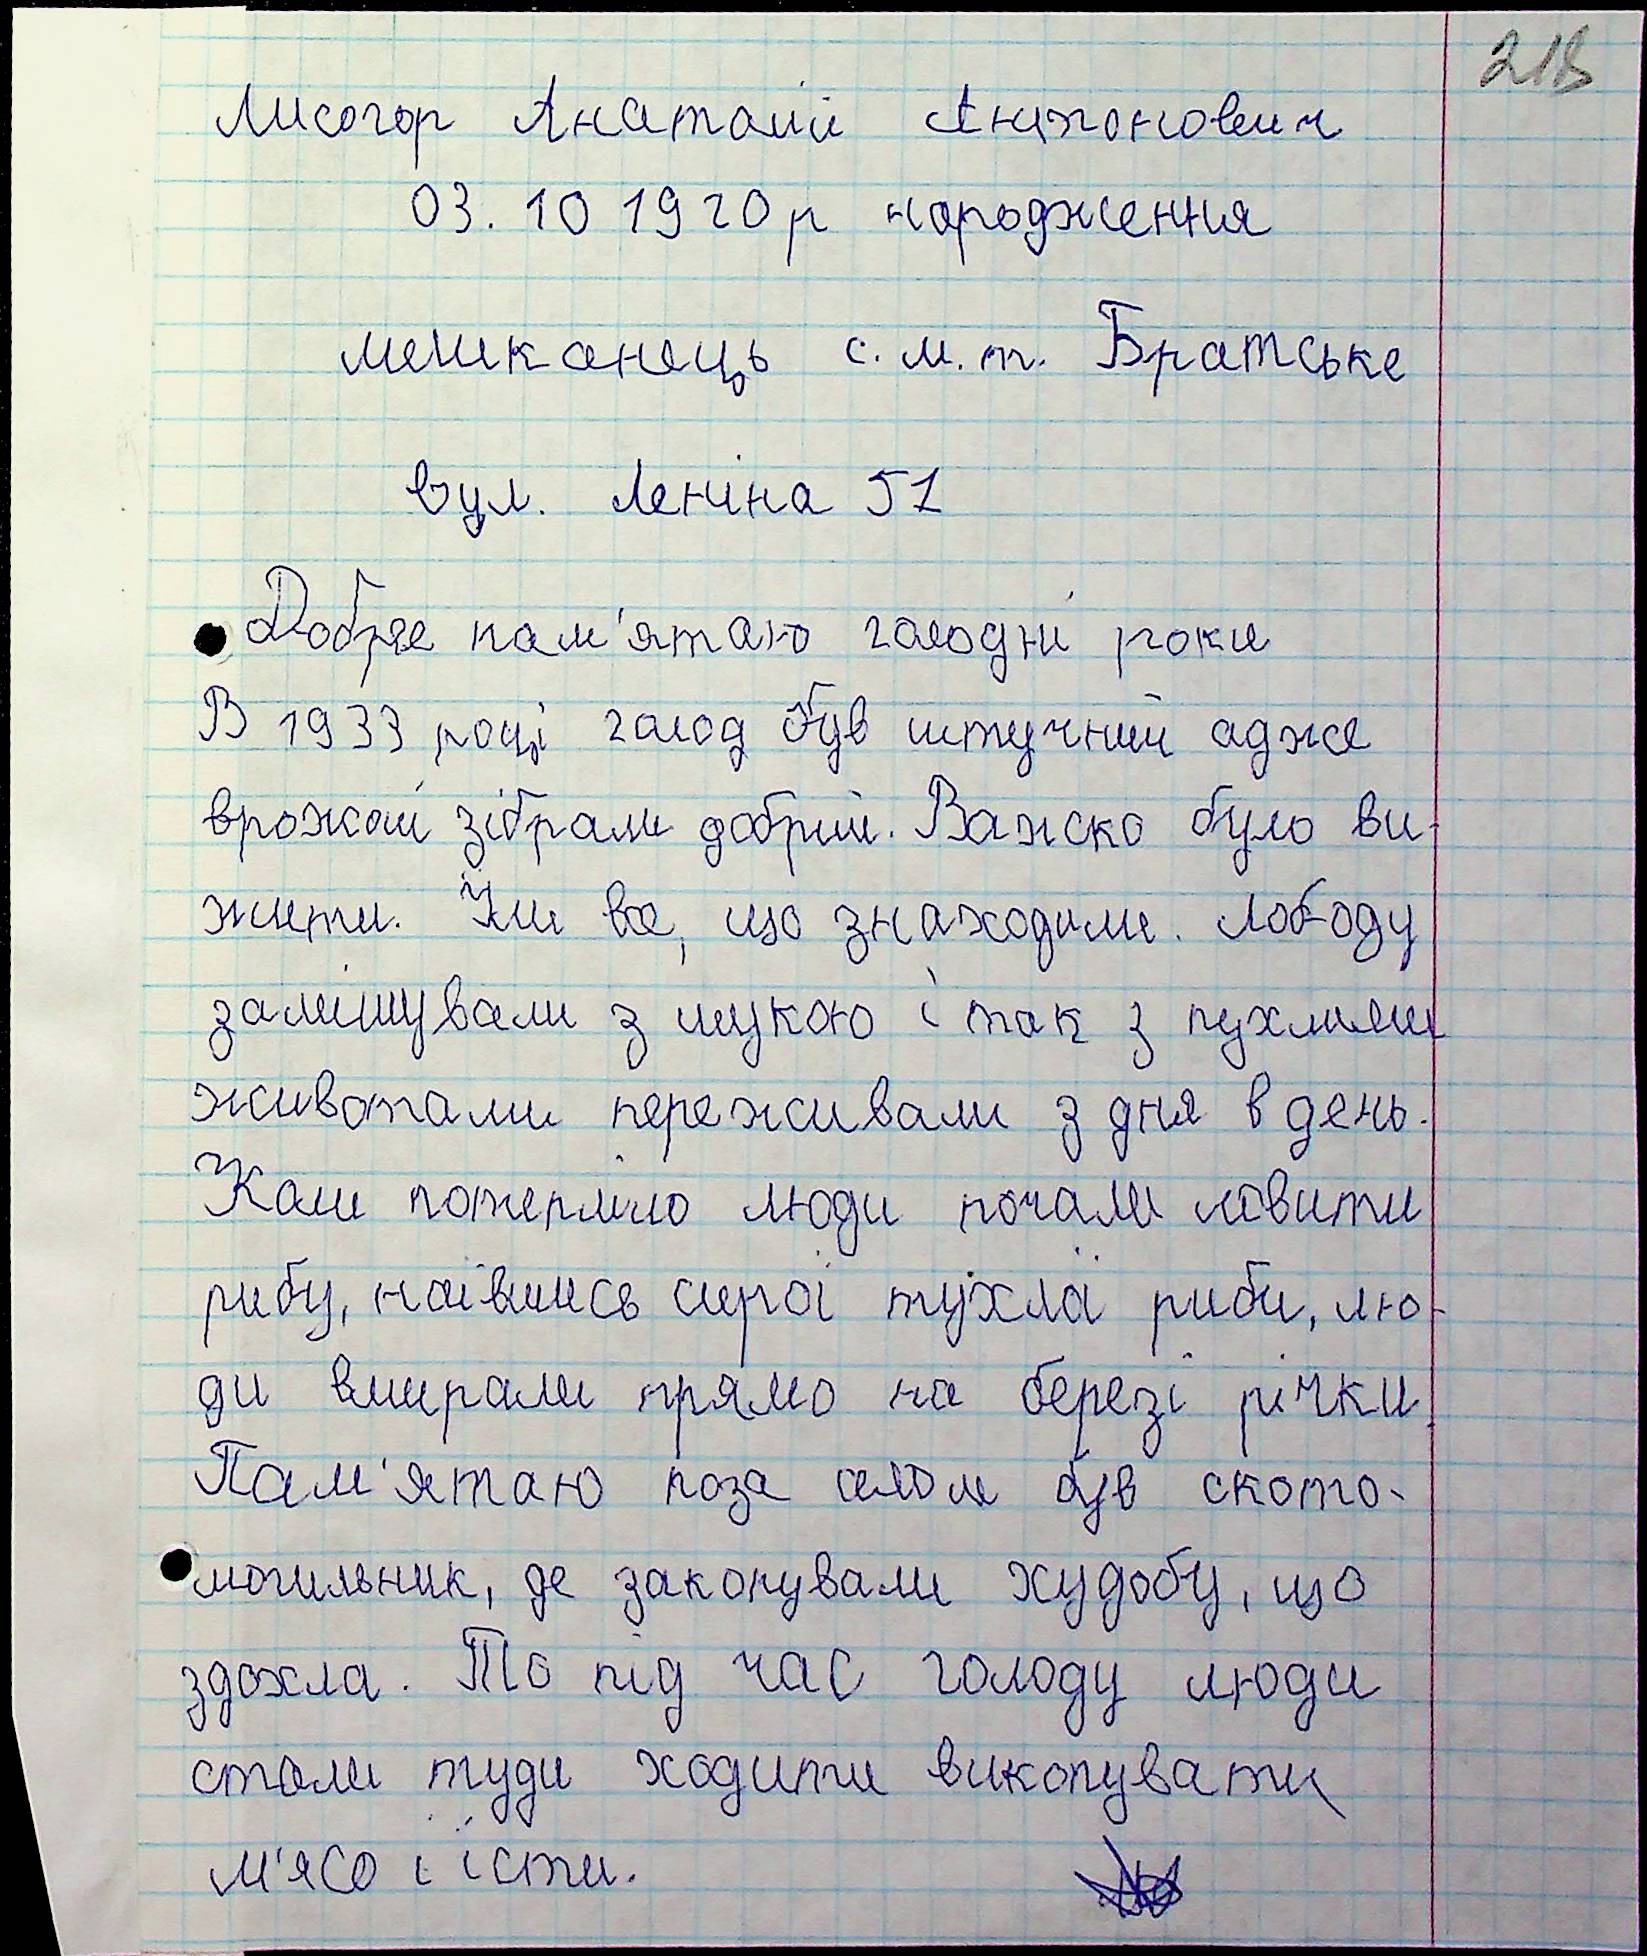 218
Лисогор Анатолій Антонович
03. 10 1920 р народження
мешканець с. м. т. Братське
вул. Леніна 51
Добре пам'ятаю голодні роки
В 1933 році голод був штучний адже
врожай зібрали добрий. Важко було ви-
жити. Їли все, що знаходили. Лободу
замішували з мукою і так з пухлими
животами переживали з дня в день.
Коли потепліло люди почали ловити
рибу, наївшись сирої тухлої риби, лю-
ди вмирали прямо на березі річки.
Пам'ятаю поза селом був ското-
могильник, де закопували худобу, що
здохла. То під час голоду люди
стали туди ходити викопувати
м'ясо і їсти.